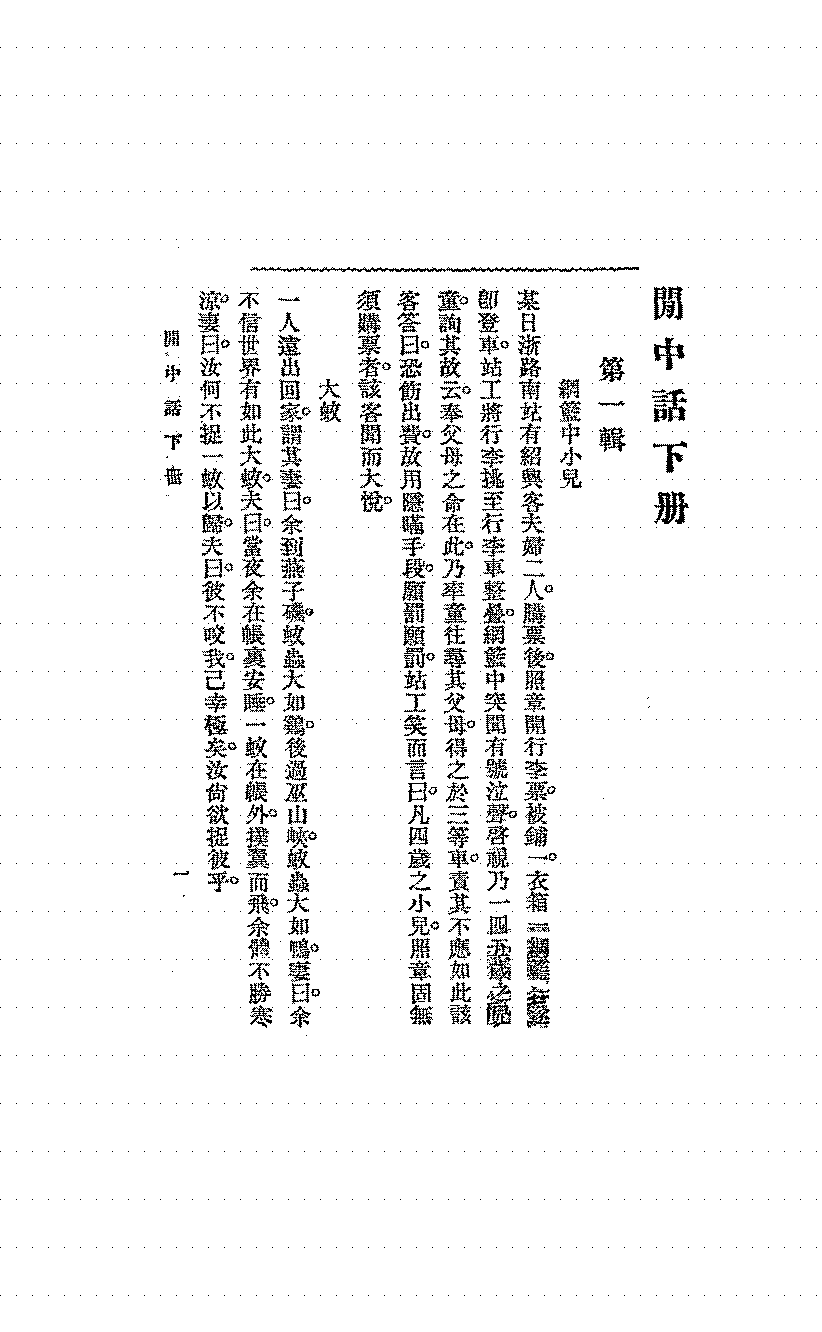 閒中話下册
第一輯
網籃中小兒
某日浙路南站有紹興客夫婦二人。購票後。照章開行李票。被鋪一。衣箱二網籃
即登車。站工將行李挑至行李車整疊。網籃中突聞有號泣聲。啓視乃一四五歲之
童。詢其故。云。奉父母之命在此。乃率童往尋其父母。得之於三等車。責其不應如此。該
客答曰。恐飭出費。故用隱瞞手段。願罰願罰。站工笑而言曰。凡四歲之小兒。照章固無
須購票者。該客聞而大悅。
大蚊
一人遠出回家。謂其妻曰。余到燕子磯。蚊蟲大如鷄。後過巫山峽。蚊蟲大如鴨。妻曰。余
不信世界有如此大蚊。夫曰。當夜余在帳裏安睡。一蚊在帳外。撲翼而飛。余體不勝寒
涼。妻曰。汝何不捉一蚊以歸。夫曰。彼不咬我。已幸極矣。汝尙欲捉彼乎。
閒中話下册
一